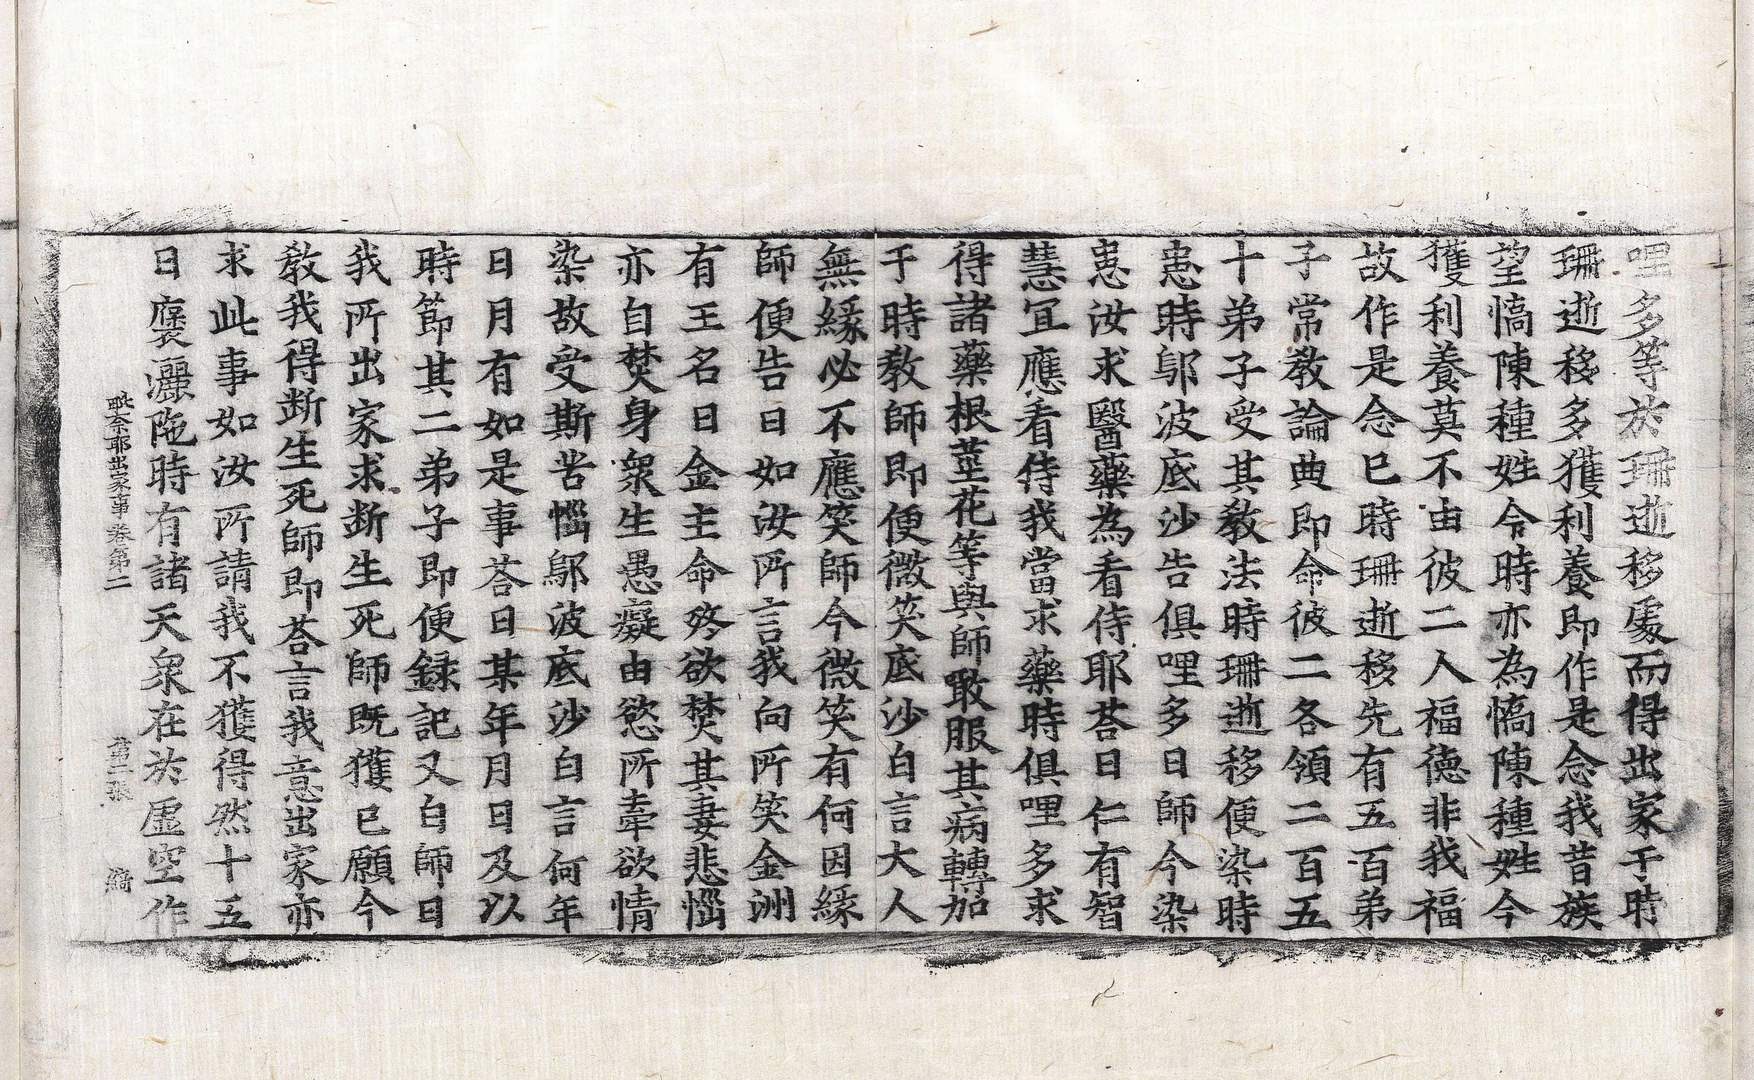 哩多等於珊逝移處而得出家于時
珊逝移多獲利養即作是念我昔族
望憍陳種姓令時亦為憍陳種姓今
獲利養莫不由彼二人福德非我福
故作是念已時珊逝移先有五百弟
子常敎論典即命彼二各領二百五
十弟子受其敎法時珊逝移便染時
患時鄔波底沙告俱哩多曰師今染
患汝求醫藥為看侍耶荅曰仁有智
慧宜應看侍我當求藥時俱哩多求
得諸藥根莖花等與師噉服其病轉加
于時敎師即便微笑底沙白言大人
無緣必不應笑師今微笑有何因緣
師便告曰如汝所言我向所笑金洲
有王名曰金主命終欲焚其妻悲惱
亦自焚身衆生愚癡由慾所牽欲情
染故受斯苦惱鄔波底沙白言何年
日月有如是事荅曰某年月日及以
時節其二弟子即便録記又白師曰
我所出家求断生死師既獲已願今
敎我得断生死師即荅言我意出家亦
求此事如汝所請我不獲得然十五
日褒灑陁時有諸天衆在於虛空作
毗奈耶出家事卷第二 第二張